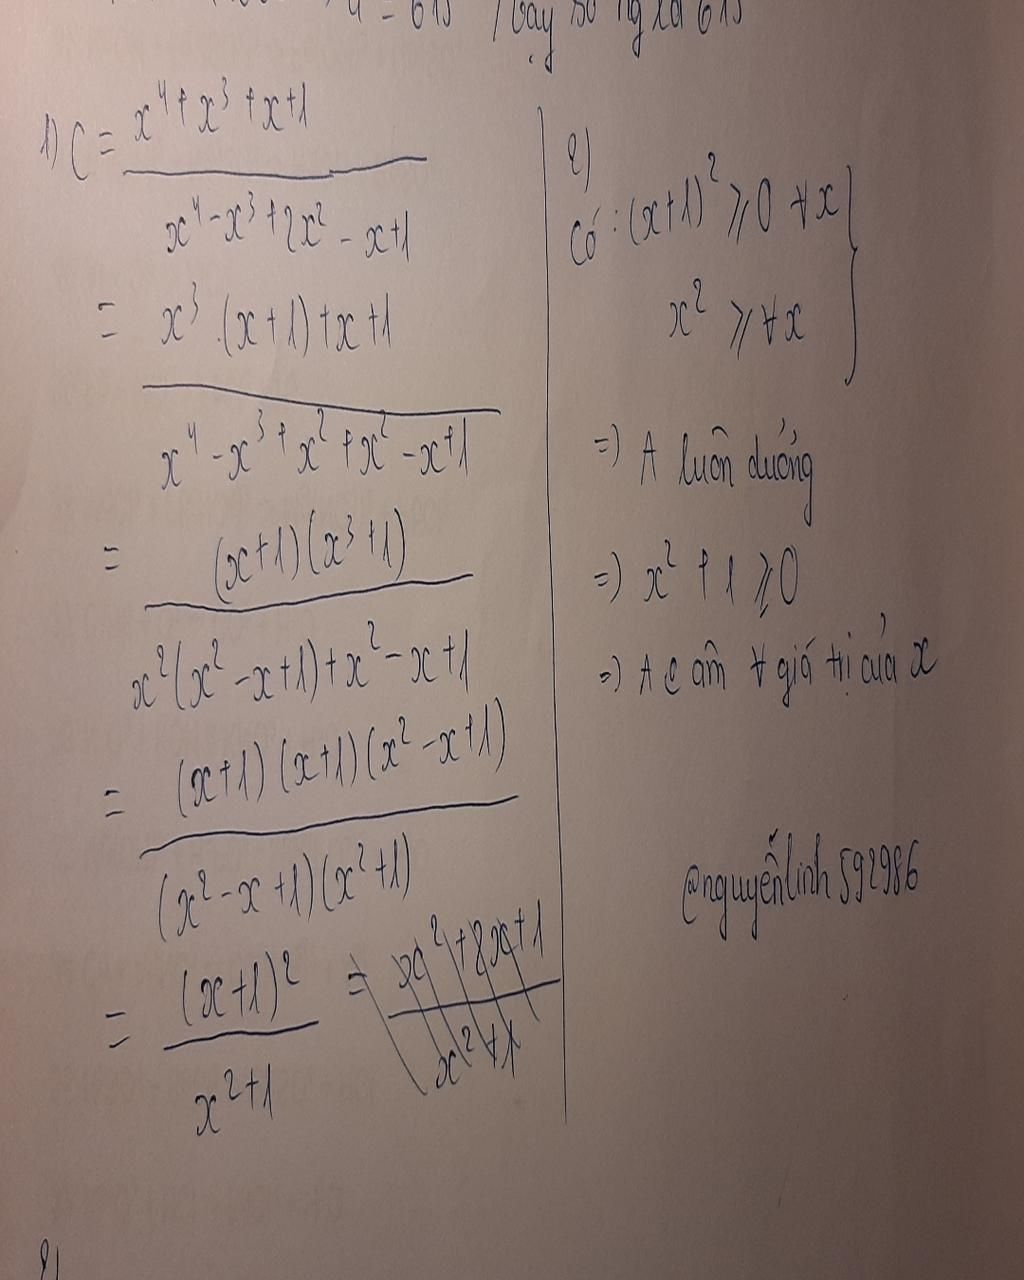 4 = 615 / Vậy số ng là 615
1) C = x⁴ + x³ + x + 1
x⁴ - x³ + 2x² - x + 1
= x³ . (x + 1) + x + 1
x⁴ - x³ + x² + x² - x + 1
= (x + 1) (x³ + 1)
x² (x² - x + 1) + x² - x + 1
= (x + 1) (x + 1) (x² - x + 1)
(x² - x + 1) (x² + 1)
= (x + 1)² = x² + 2x + 1
x² + 1 x² + 1
2)
Có : (x + 1)² ⩾ 0 ∀ x
x² ⩾ ∀ x
=) A luôn dương
=) x² + 1 ⩾ 0
=) A c âm ∀ giá trị của x
@nguyễnlinh592986